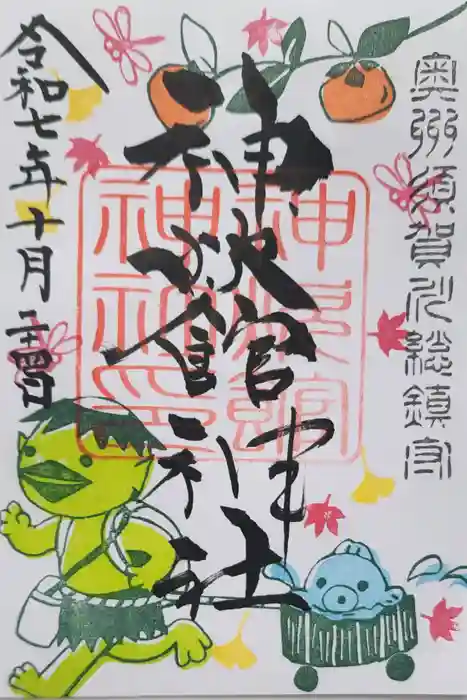 奥州須賀川総鎮守
神炊館神社
神炊館神社印
令和七年十月二十四日